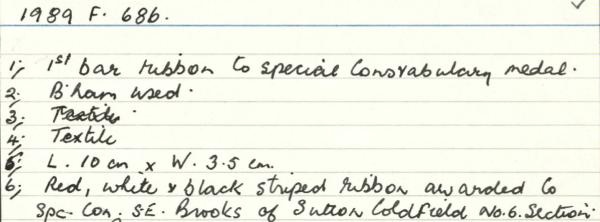 1989 F. 686.
1; 1st bar ribbon to special Constabulary medal.
2; B'ham used.
3; Textile
4; Textile
5; L. 10 cm x W. 3.5 cm.
6; Red, white & black striped ribbon awarded to
Spc. Con; S.E. Brooks of Sutton Coldfield No.6. Section.